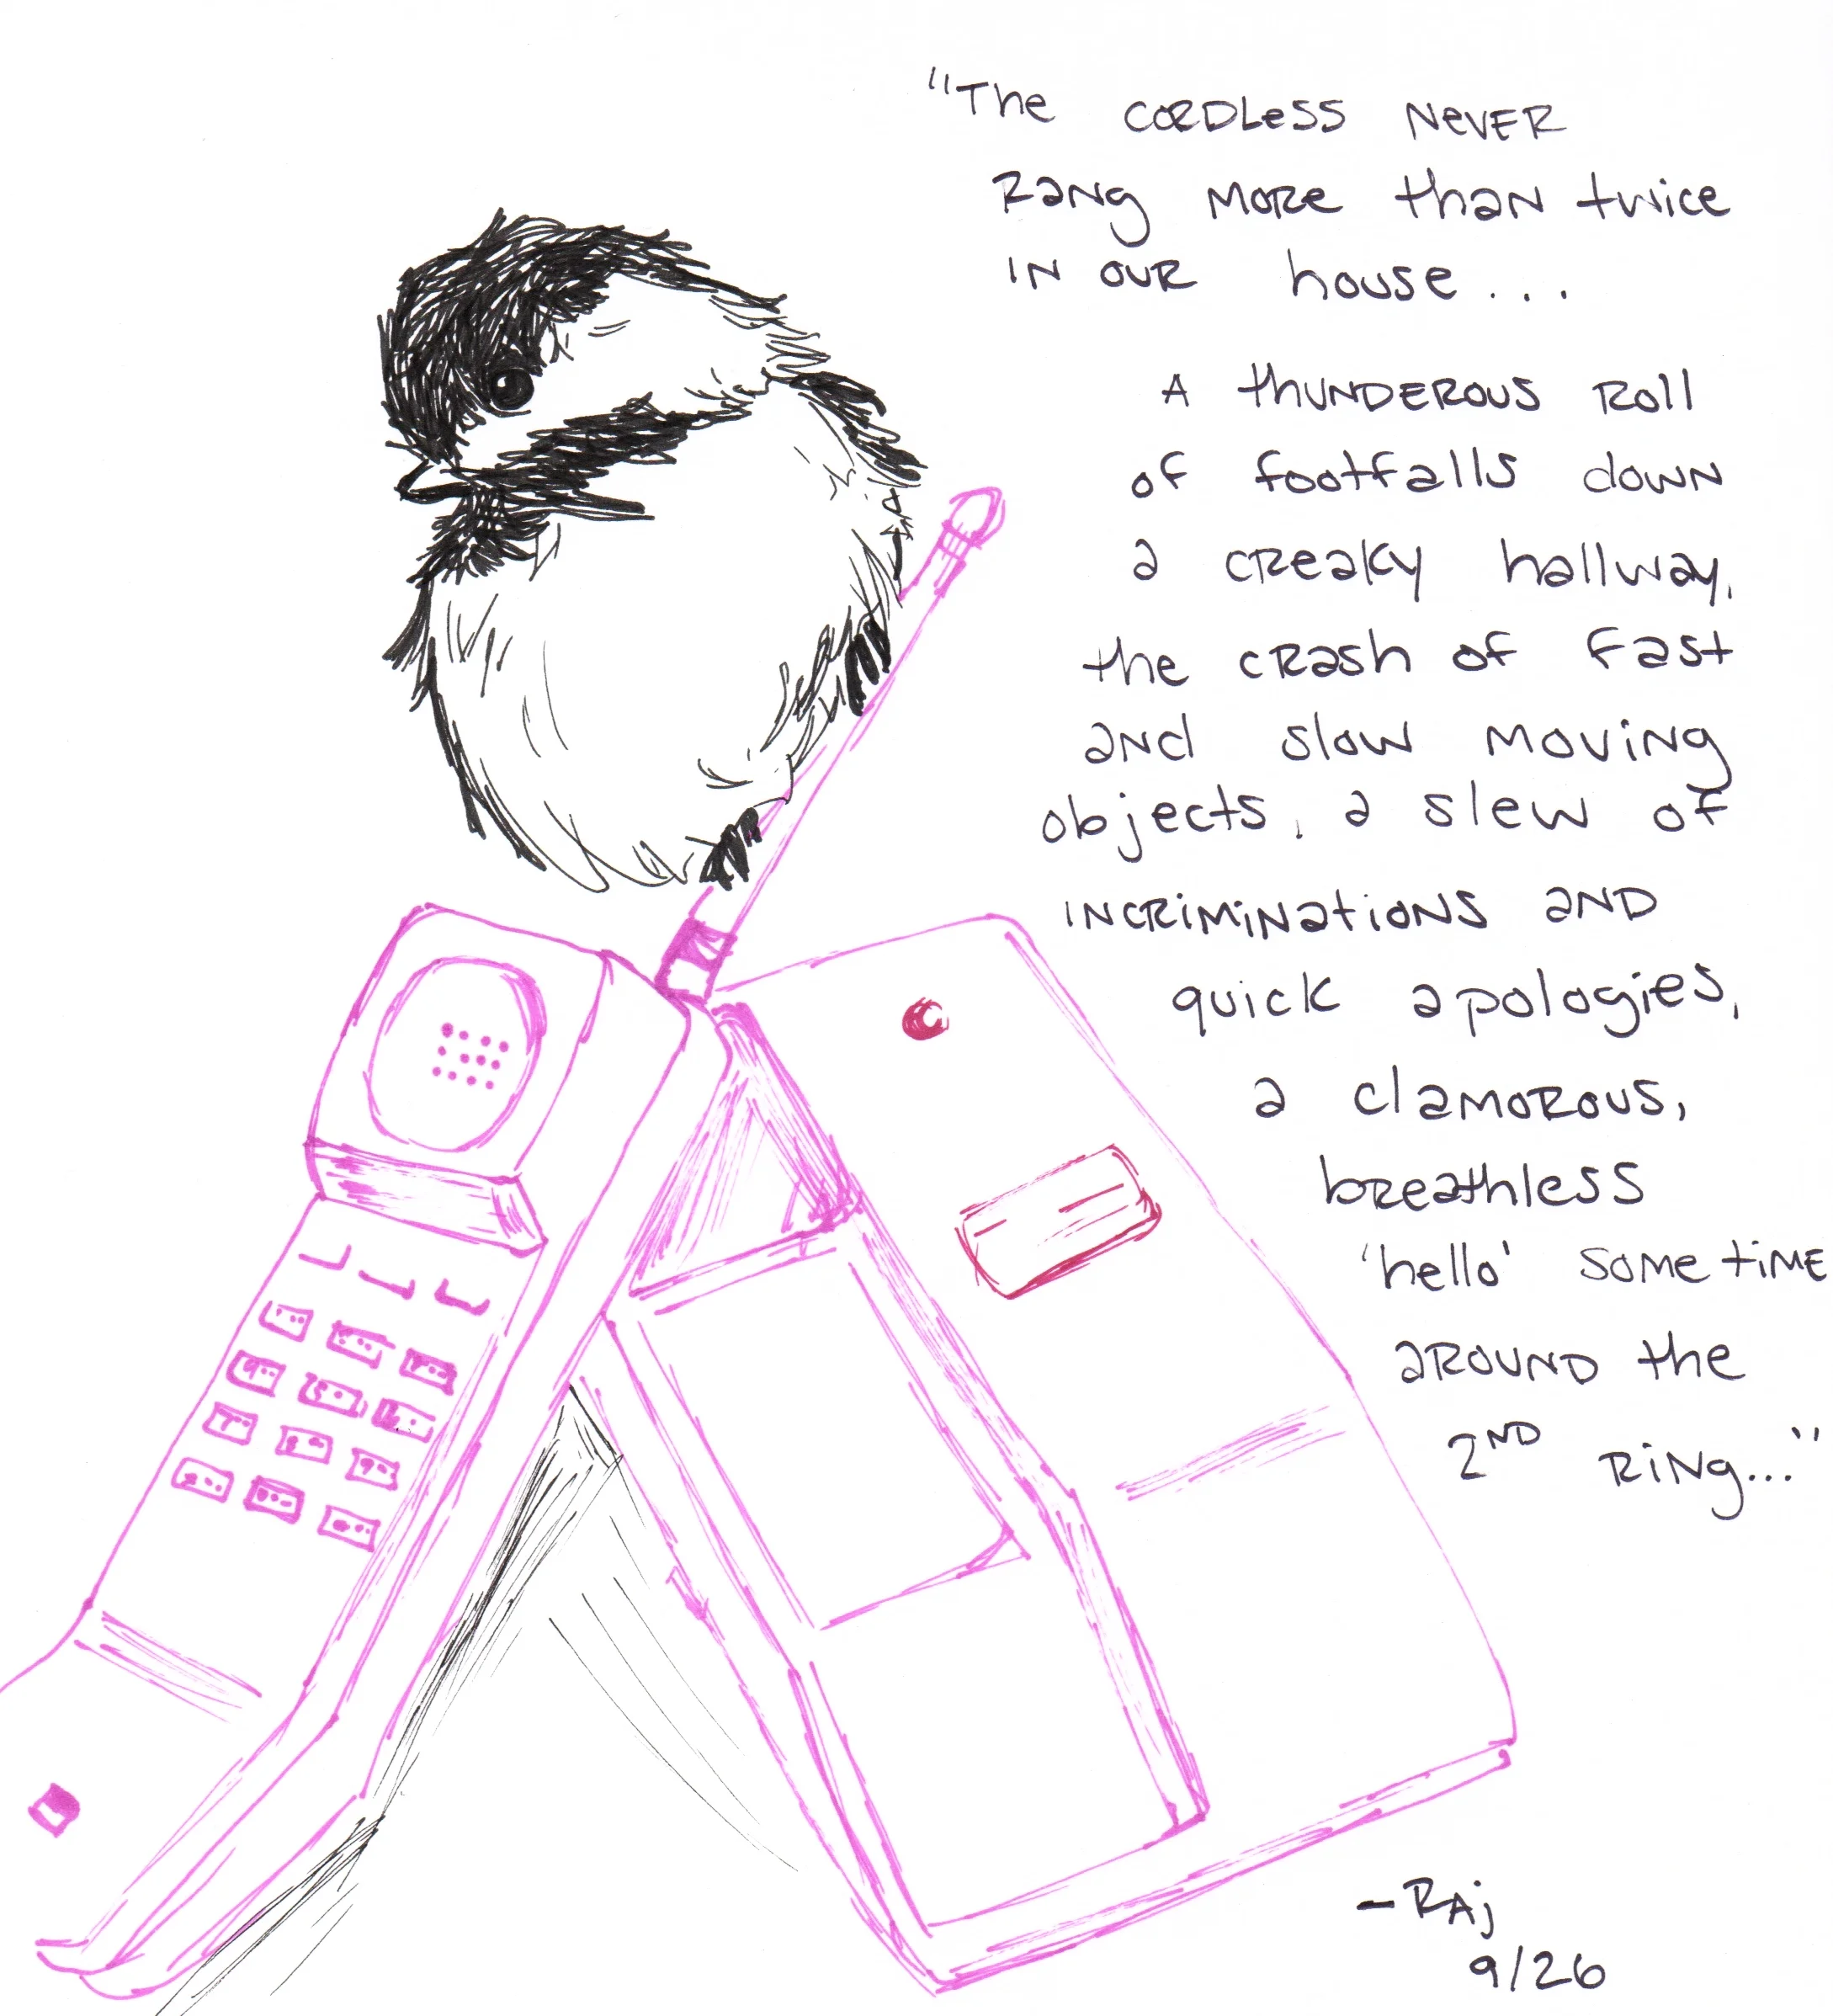 "The cordless never
rang more than twice
in our house...
A thunderous roll
of footfalls down
a creaky hallway,
the crash of fast
and slow moving
objects, a slew of
incriminations and
quick apologies,
a clamorous,
breathless
'hello' sometime
around the
2ND ring..."
-Raj
9/26